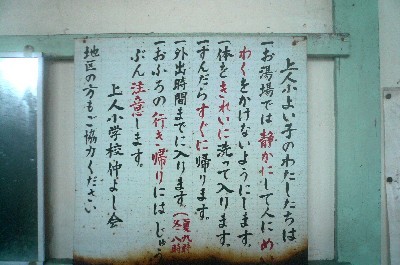 上人小よい子のわたしたちは
一お湯場では静かにして人にめい
わくをかけないようにします。
一体をきれいに洗って入ります。
一すんだらすぐに帰ります。
一外出時間までに入ります。(夏九時 冬八時)
一おふろの行き帰りにはじゅう
ぶん注意します。
上人小学校仲よし会
地区の方もご協力ください